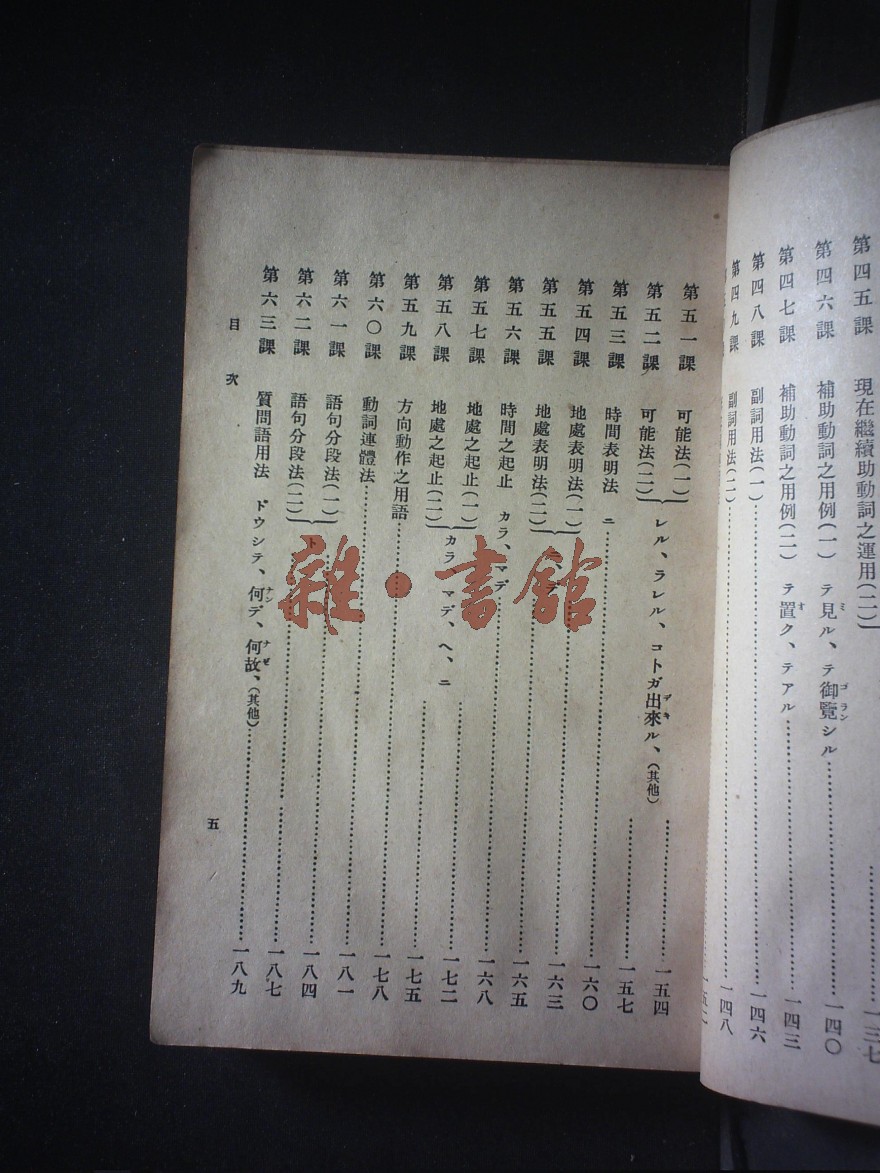 第四五課 現在繼續助動詞之運用(二)……一三七
第四六課 補助動詞之用例(一) テ見ル、テ御覽シル……一四〇
ミ ゴラン
第四七課 補助動詞之用例(二) テ置ク、テアル……一四三
オ
第四八課 副詞用法(一)……一四六
第四九課 副詞用法(二)……一四八
第五一課 可能法(一)……一五四
レル、ラレル、コトガ出來ル、(其他)
デキ
第五二課 可能法(二)……一五七
第五三課 時間表明法 ニ……一六〇
第五四課 地處表明法(一)……一六三
第五五課 地處表明法(二)……一六五
第五六課 時間之起止 カラ、マデ……一六八
第五七課 地處之起止(一)……一七二
カラ、マデ、ヘ、ニ
第五八課 地處之起止(二)……一七五
第五九課 方向動作之用語……一七八
第六〇課 動詞連體法……一八一
第六一課 語句分段法(一)……一八四
ト
第六二課 語句分段法(二)……一八七
第六三課 質問語用法 ドウシテ、何デ、何故、(其他)……一八九
ナン ナゼ
目次
五
雜·書館